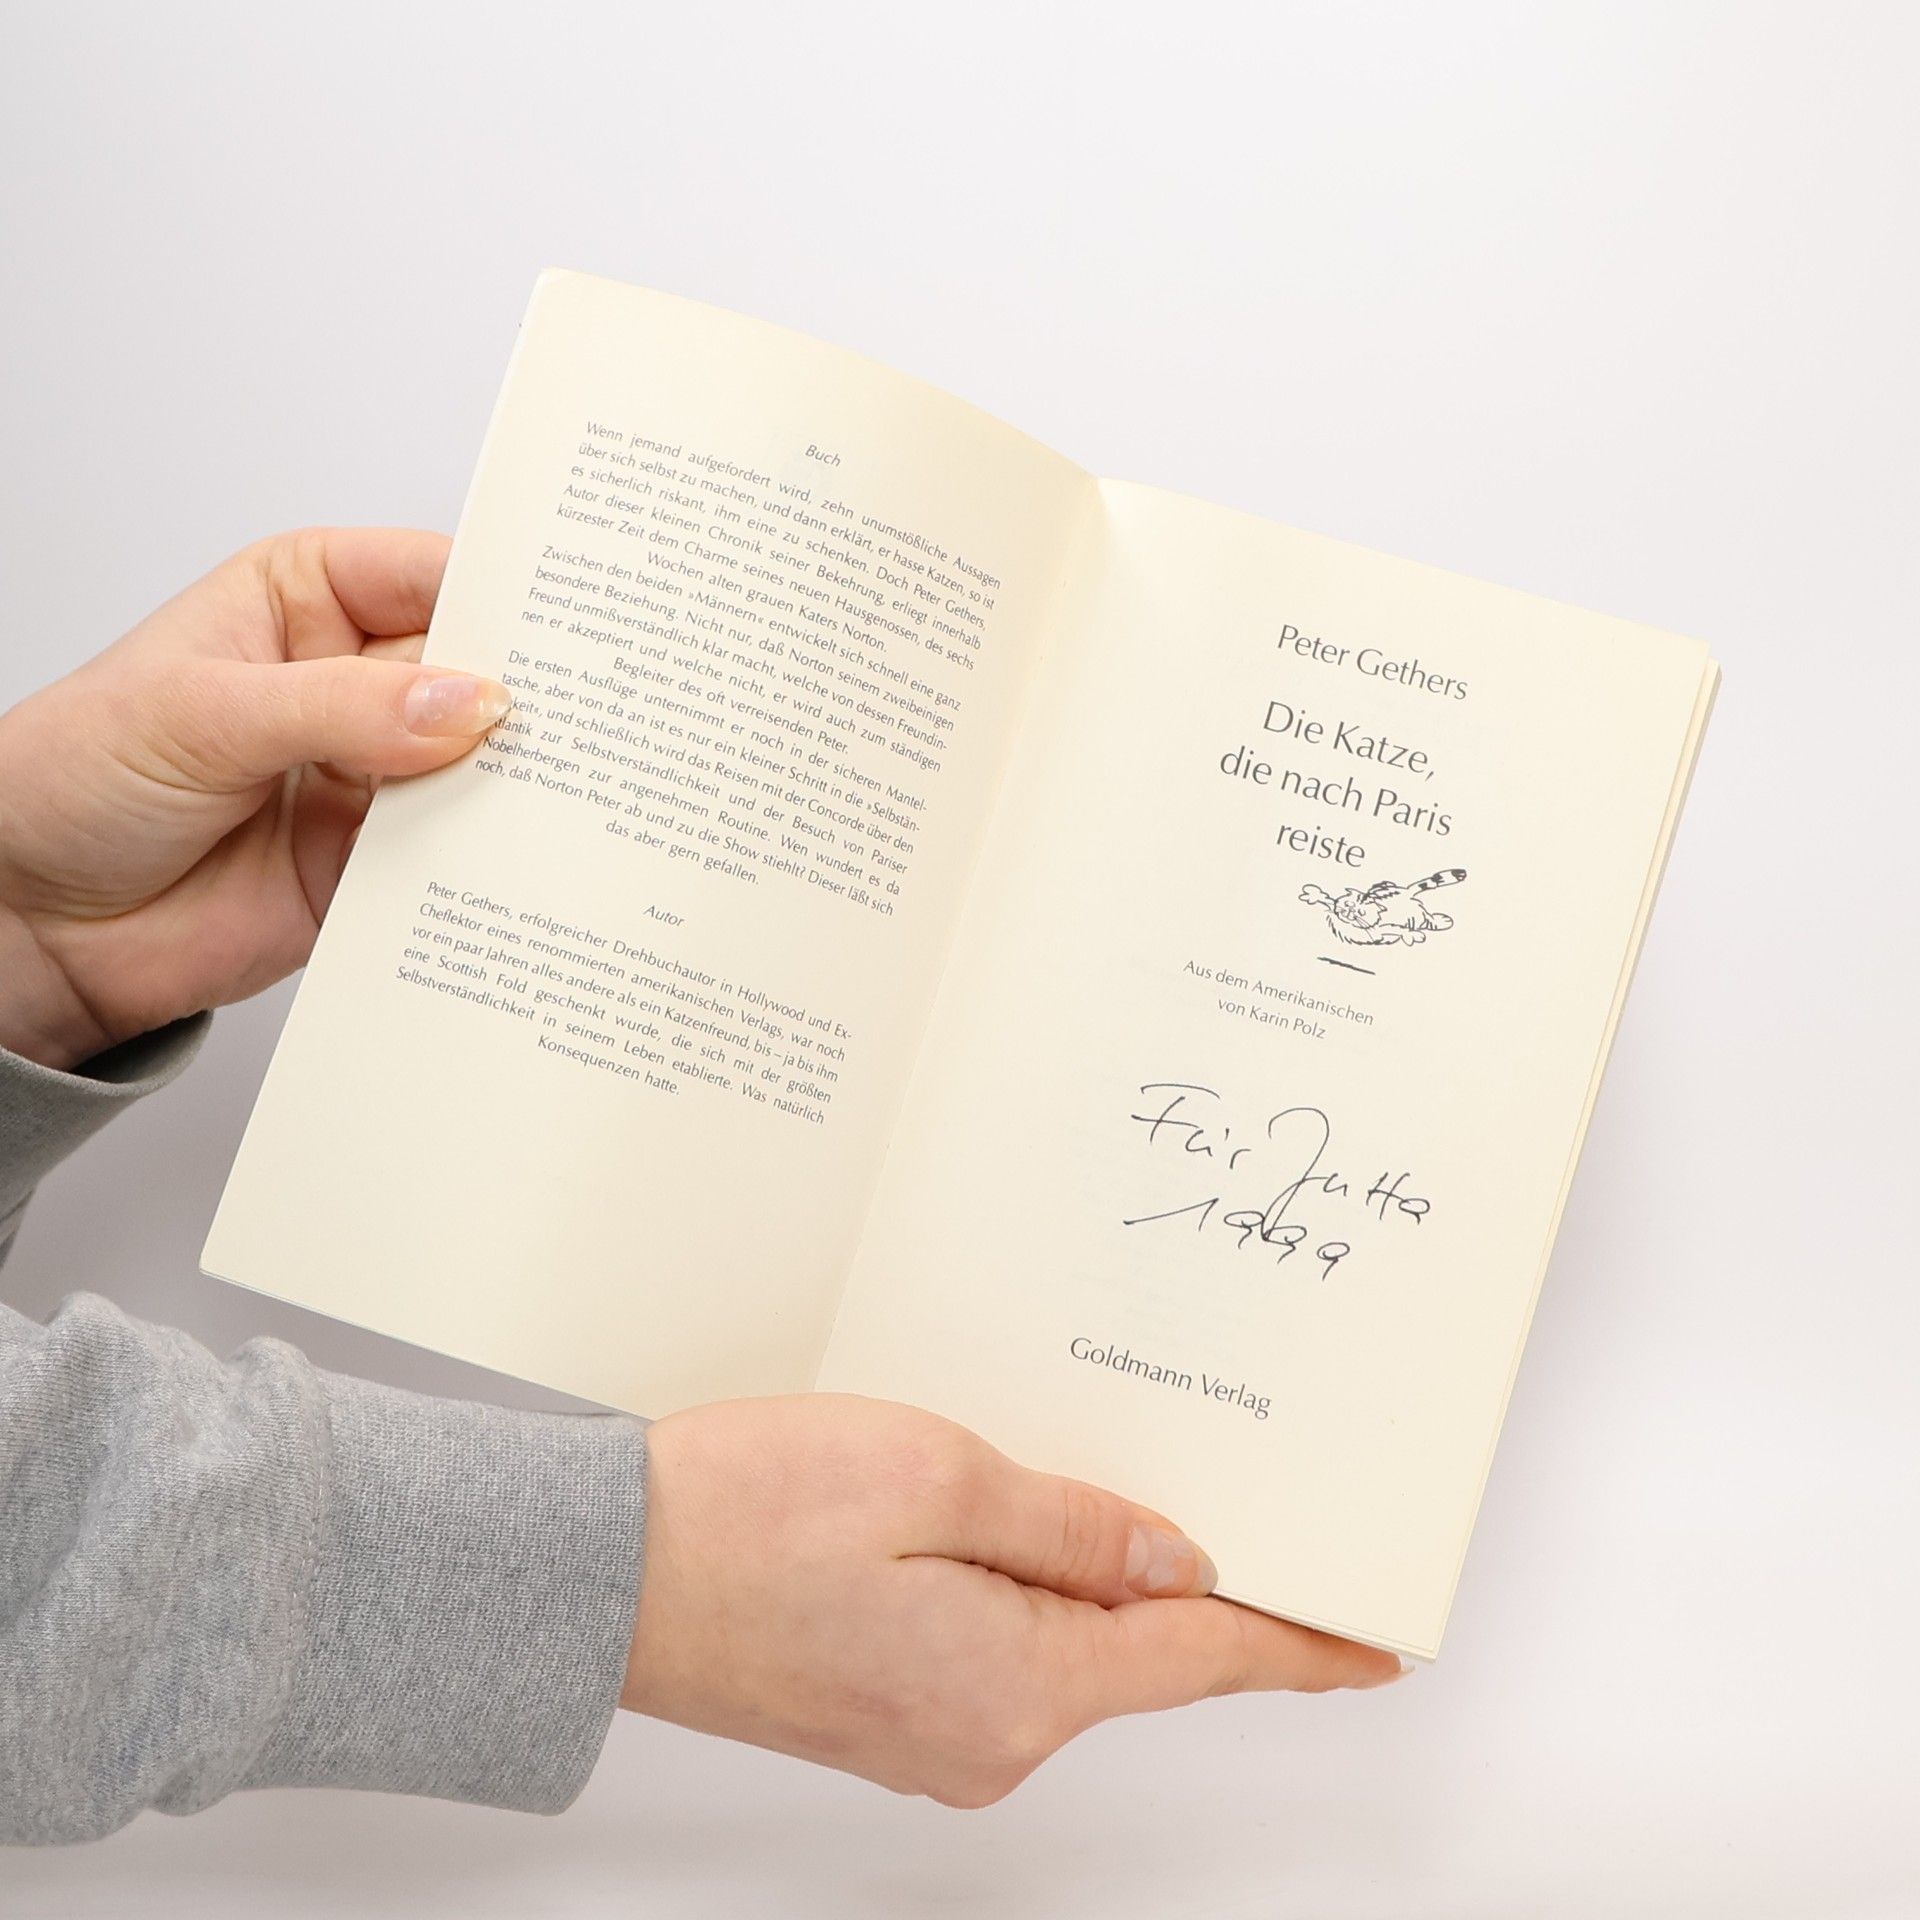 Buch
Wenn jemand aufgefordert wird, zehn unumstößliche Aussagen
über sich selbst zu machen, und dann erklärt, er hasse Katzen, so ist
es sicherlich riskant, ihm eine zu schenken. Doch Peter Gethers,
Autor dieser kleinen Chronik seiner Bekehrung, erliegt innerhalb
kürzester Zeit dem Charme seines neuen Hausgenossen, des sechs
Wochen alten grauen Katers Norton.
Zwischen den beiden »Männern« entwickelt sich schnell eine ganz
besondere Beziehung. Nicht nur, daß Norton seinem zweibeinigen
Freund unmißverständlich klar macht, welche von dessen Freundin-
nen er akzeptiert und welche nicht, er wird auch zum ständigen
Begleiter des oft verreisenden Peter.
Die ersten Ausflüge unternimmt er noch in der sicheren Mantel-
tasche, aber von da an ist es nur ein kleiner Schritt in die »Selbstän-
keit«, und schließlich wird das Reisen mit der Concorde über den
Atlantik zur Selbstverständlichkeit und der Besuch von Pariser
Nobelherbergen zur angenehmen Routine. Wen wundert es da
noch, daß Norton Peter ab und zu die Show stiehlt? Dieser läßt sich
das aber gern gefallen.
Autor
Peter Gethers, erfolgreicher Drehbuchautor in Hollywood und Ex-
Cheflektor eines renommierten amerikanischen Verlags, war noch
vor ein paar Jahren alles andere als ein Katzenfreund, bis – ja bis ihm
eine Scottish Fold geschenkt wurde, die sich mit der größten
Selbstverständlichkeit in seinem Leben etablierte. Was natürlich
Konsequenzen hatte.
Peter Gethers
Die Katze,
die nach Paris
reiste
Aus dem Amerikanischen
von Karin Polz
Für Jutta
1999
Goldmann Verlag